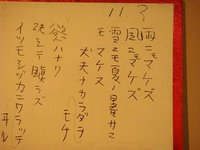 11.3
雨ニモマケズ
風ニモマケズ
雪ニモ夏ノ暑サニモマケヌ
丈夫ナカラダヲモチ
慾ハナク
決シテ瞋ラズ
イツモシヅカニワラッテヰル